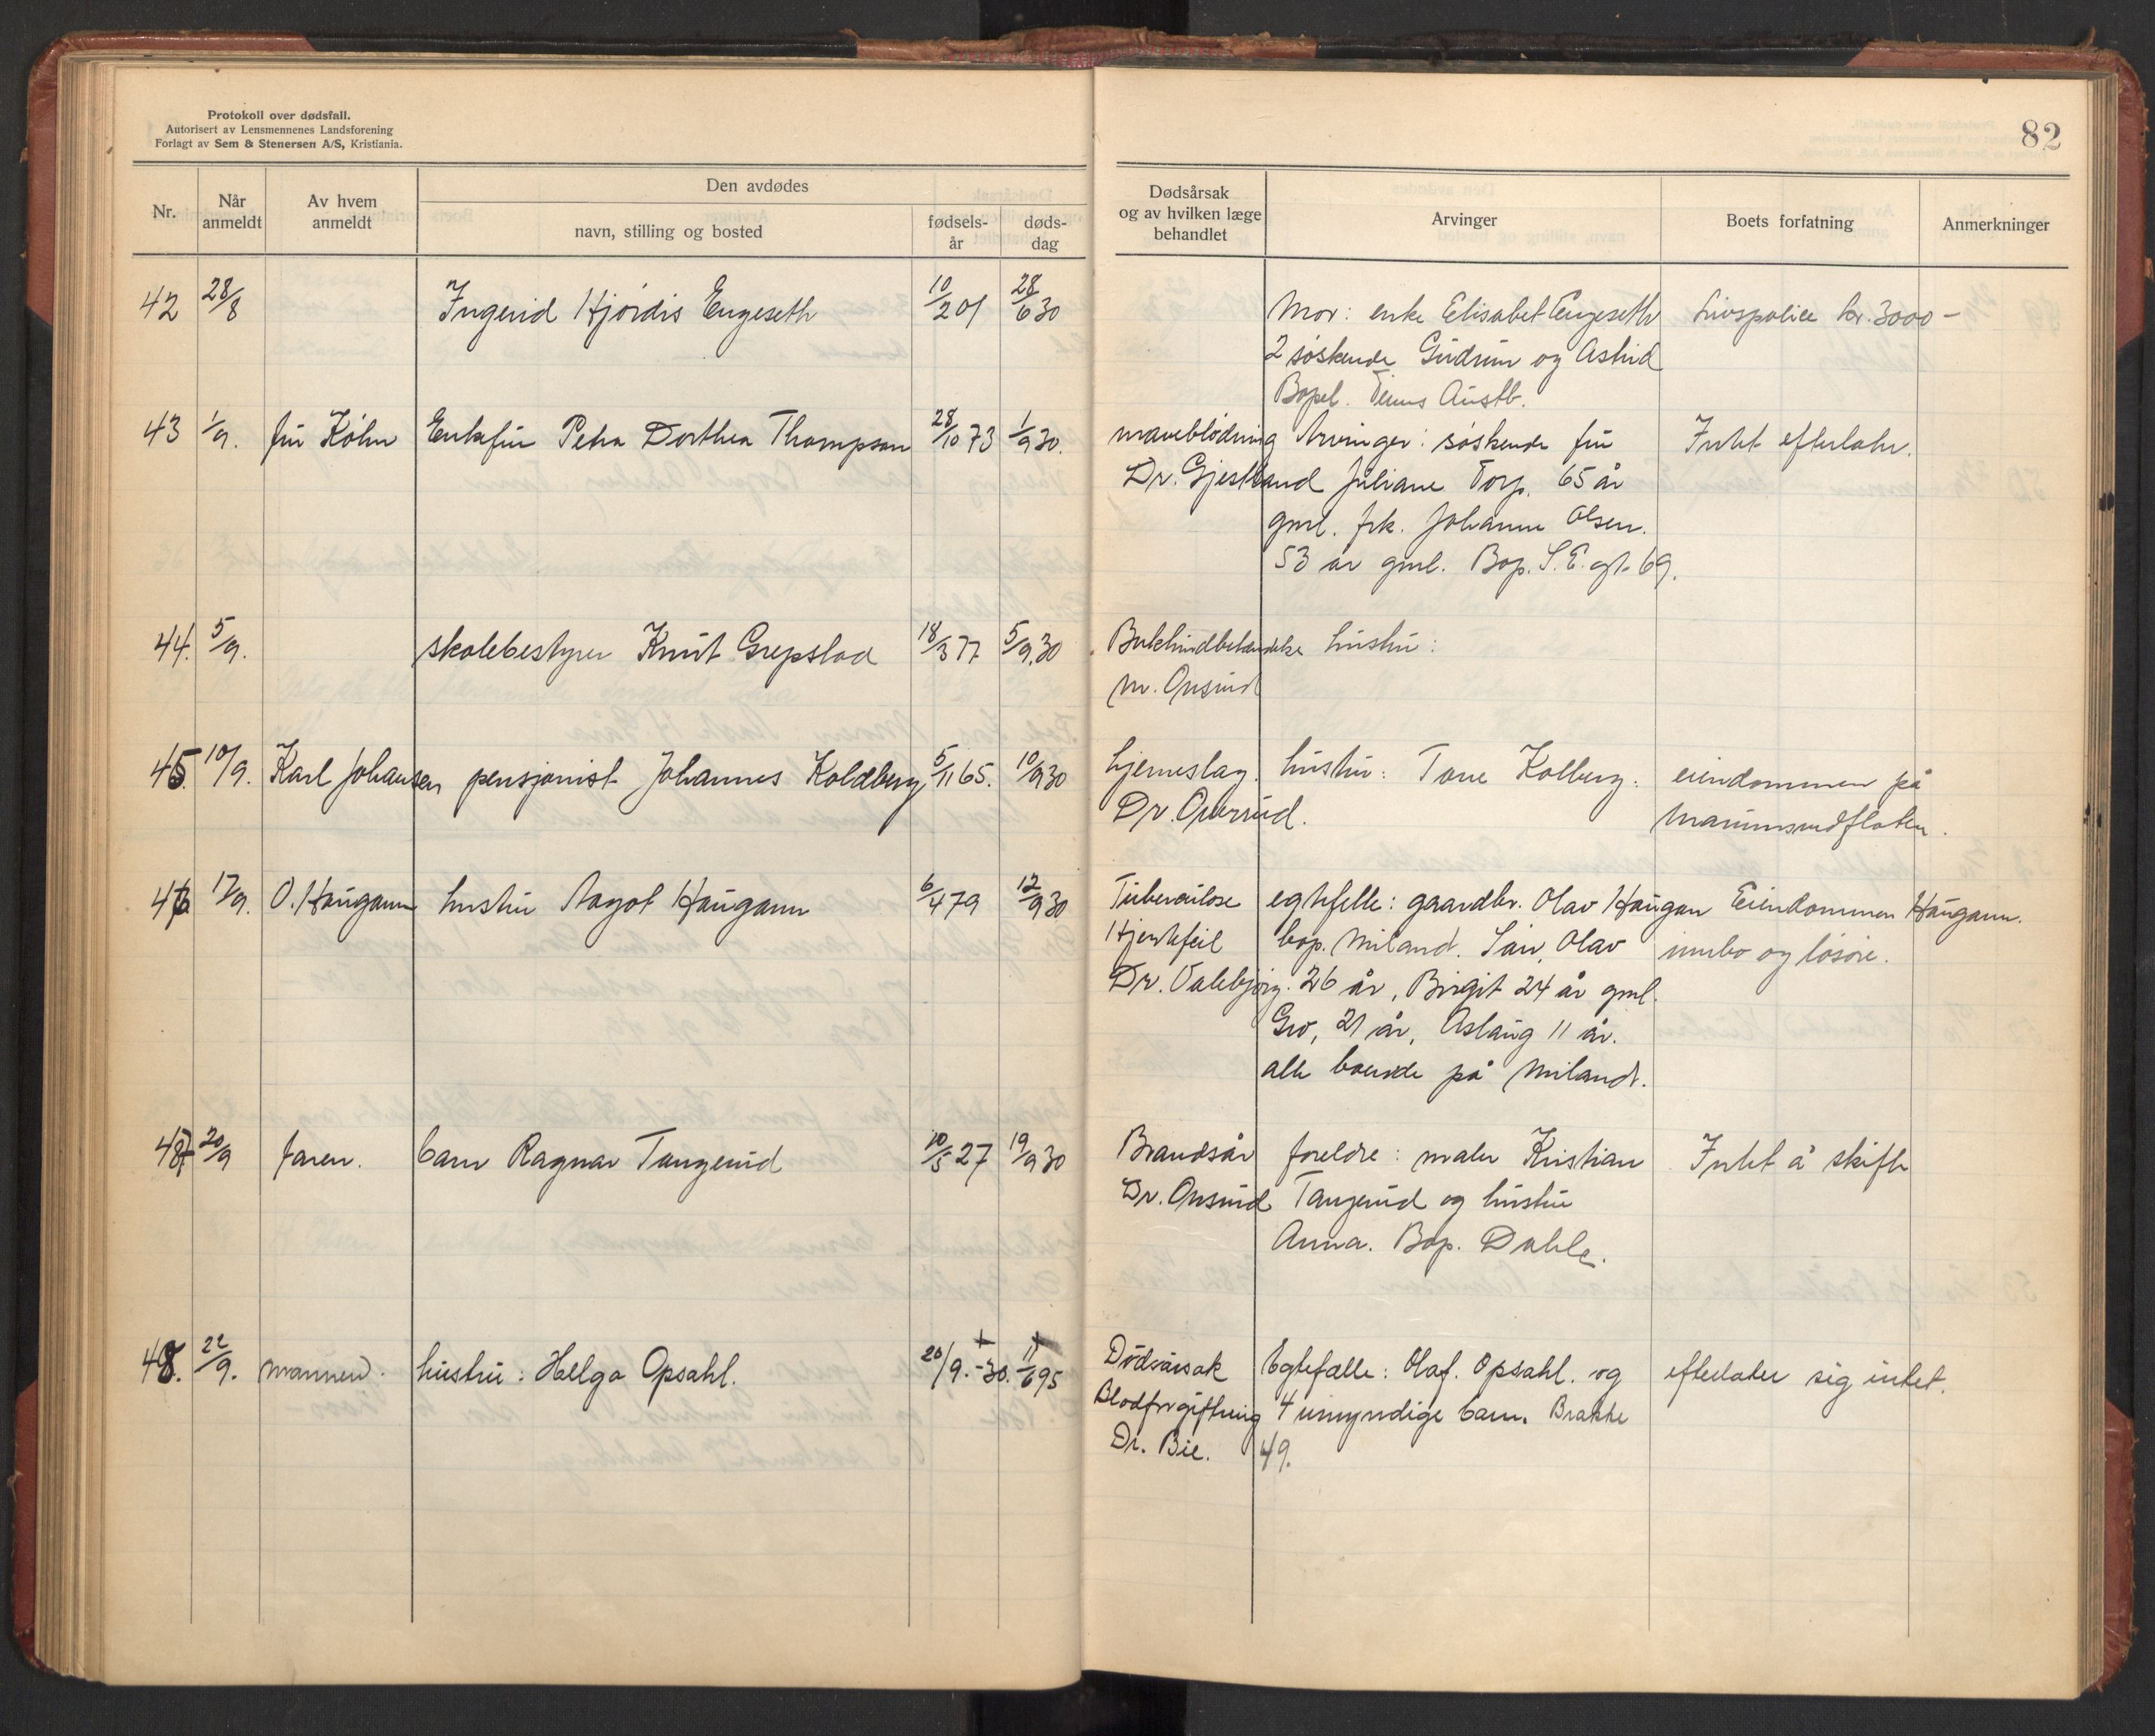 Protokoll over dødsfall.
Autorisert av Lensmennenes Landsforening
Forlagt av Sem & Stenersen A/S, Kristiania.
82
Nr.
Når anmeldt
Av hvem anmeldt
Den avdødes
navn, stilling og bosted
fødsels-år
døds-dag
Dødsårsak og av hvilken læge behandlet
Arvinger
Boets forfatning
Anmerkninger
42 28/8 Ingerid Hjørdis Engeseth 10/2 01 28/6 30 Mor: enke Elisabet Engeseth Livspolice kr. 3000-
2 søskende Gudrun og Astrid
Bopel. Austb.
43 1/9. fru Køhn Enkefru Petra Dorthea Thompson 28/10 73 1/9 30. maveblødning Arvinger: søskende fru Intet efterlatr.
Dr. Gjestland Juliane Torp. 65 år
gml. frk. Johanne Olsen.
53 år gml. Bop. S.E. gt. 69.
44. 5/9. skolebestyrer Knut Grepstad 18/3 77 5/9 30 Bukhindbetændelse hustru:
m. Onsrud
45. 10/9. Karl Johansen pensjonist Johannes Koldberg 5/11 65. 10/9 30 hjerneslag. hustru: Tone Kolberg. eiendommen på
Dr. Onsrud. Mærumsmdfloten.
46 17/9. O. Haugann hustru Aagot Haugann 6/4 79 12/9 30 Tuberculose egtefelle: gaardbr. Olav Haugan Eiendommen Haugann.
Hjertefeil bop. Miland. Søn, Olav innbo og løsøre.
Dr. Dalebjørg. 26 år, Birgit 24 år gml.
Gro, 21 år, Aslaug 11 år.
alle boende på Miland.
47 20/9 faren. barn Ragnar Tangerud 10/5 27 19/9 30 Brandsår foreldre: maler Kristian Intet å skifte
Dr. Onsrud Tangerud og hustru
Anna. Bop. Dahle.
48. 22/9. mannen. hustru: Helga Opsahl. 20/9.-30. 11/6 95 Dødsårsak Egtefælle: Olaf. Opsahl. og efterlater sig intet.
Blodforgiftning 4 umyndige barn. Brakke
Dr. Bie. 49.